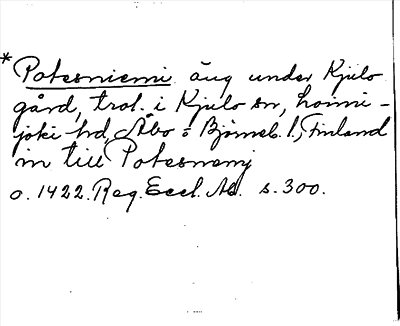 *Potesniemi äng under Kjulo
gård, trol. i Kjulo sn, Loimi-
joki hd, Åbo = Björneb. l., Finland
in till Potesnemj
o. 1422. Reg. Eccl. Ab. s. 300.